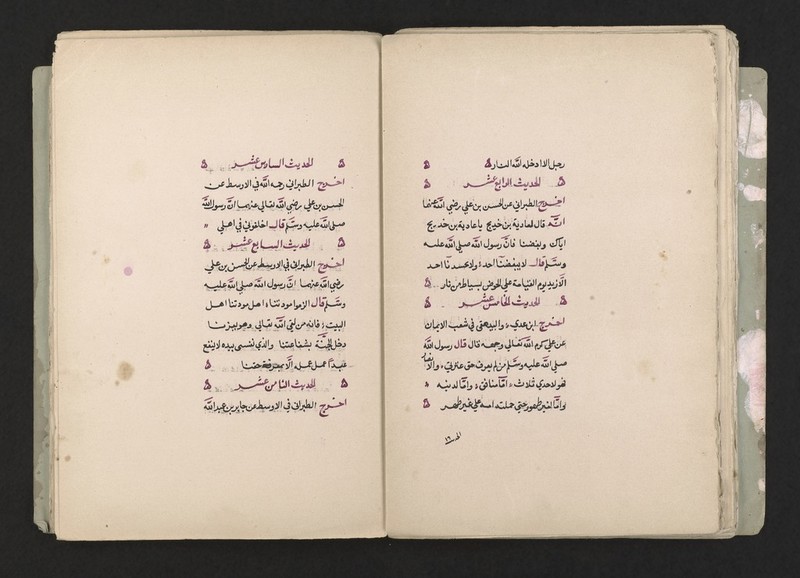 رجل الا ادخله الله النار
الحديث الرابع عشر
اخرج الطبراني عن الحسن بن علي رضي الله عنهما
انه قال لمعاوية بن خديج يا معاوية بن خديج
اياك وبغضنا فان رسول الله صلى الله عليه
وسلم قال لا يبغضنا احد ولا يحسدنا احد
الا زيد يوم القيامة على الحوض بسياط من نار
الحديث الخامس عشر
اخرج ابن عدي والبيهقي في شعب الايمان
عن علي كرم الله تعالى وجهه قال قال رسول الله
صلى الله عليه وسلم من لم يعرف حق عترتي والانصار
فهو لاحدى ثلاث اما منافق واما لدنيه
واما لغير طهور حتى حملته امه على غير طهر
الحديث السادس عشر
اخرج الطبراني رحمه الله في الاوسط عن
الحسن بن علي رضي الله تعالى عنهما ان رسول الله
صلى الله عليه وسلم قال اخلفوني في اهلي
الحديث السابع عشر
اخرج الطبراني في الاوسط عن الحسن بن علي
رضي الله عنهما ان رسول الله صلى الله عليه
وسلم قال الزموا مودتنا اهل
البيت فانه من لقي الله تعالى وهو يودنا
دخل الجنة بشفاعتنا والذي نفسي بيده لا ينفع
عبدا عمل عمله الا بمعرفة حقنا
الحديث الثامن عشر
اخرج الطبراني في الاوسط عن جابر بن عبد الله